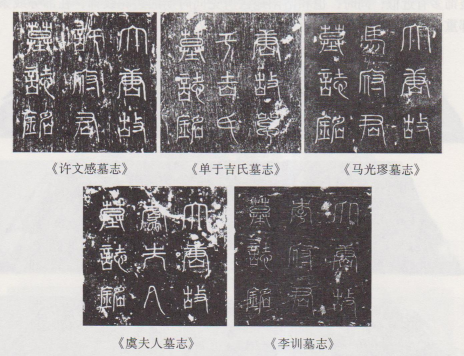 大唐故
許府君
墓誌銘
唐故單
于吉氏
墓誌銘
大唐故
馬府君
墓誌銘
《许文感墓志》
《单于吉氏墓志》
《马光璆墓志》
大唐故
虞夫人
墓誌銘
大唐故
李府君
墓誌銘
《虞夫人墓志》
《李训墓志》